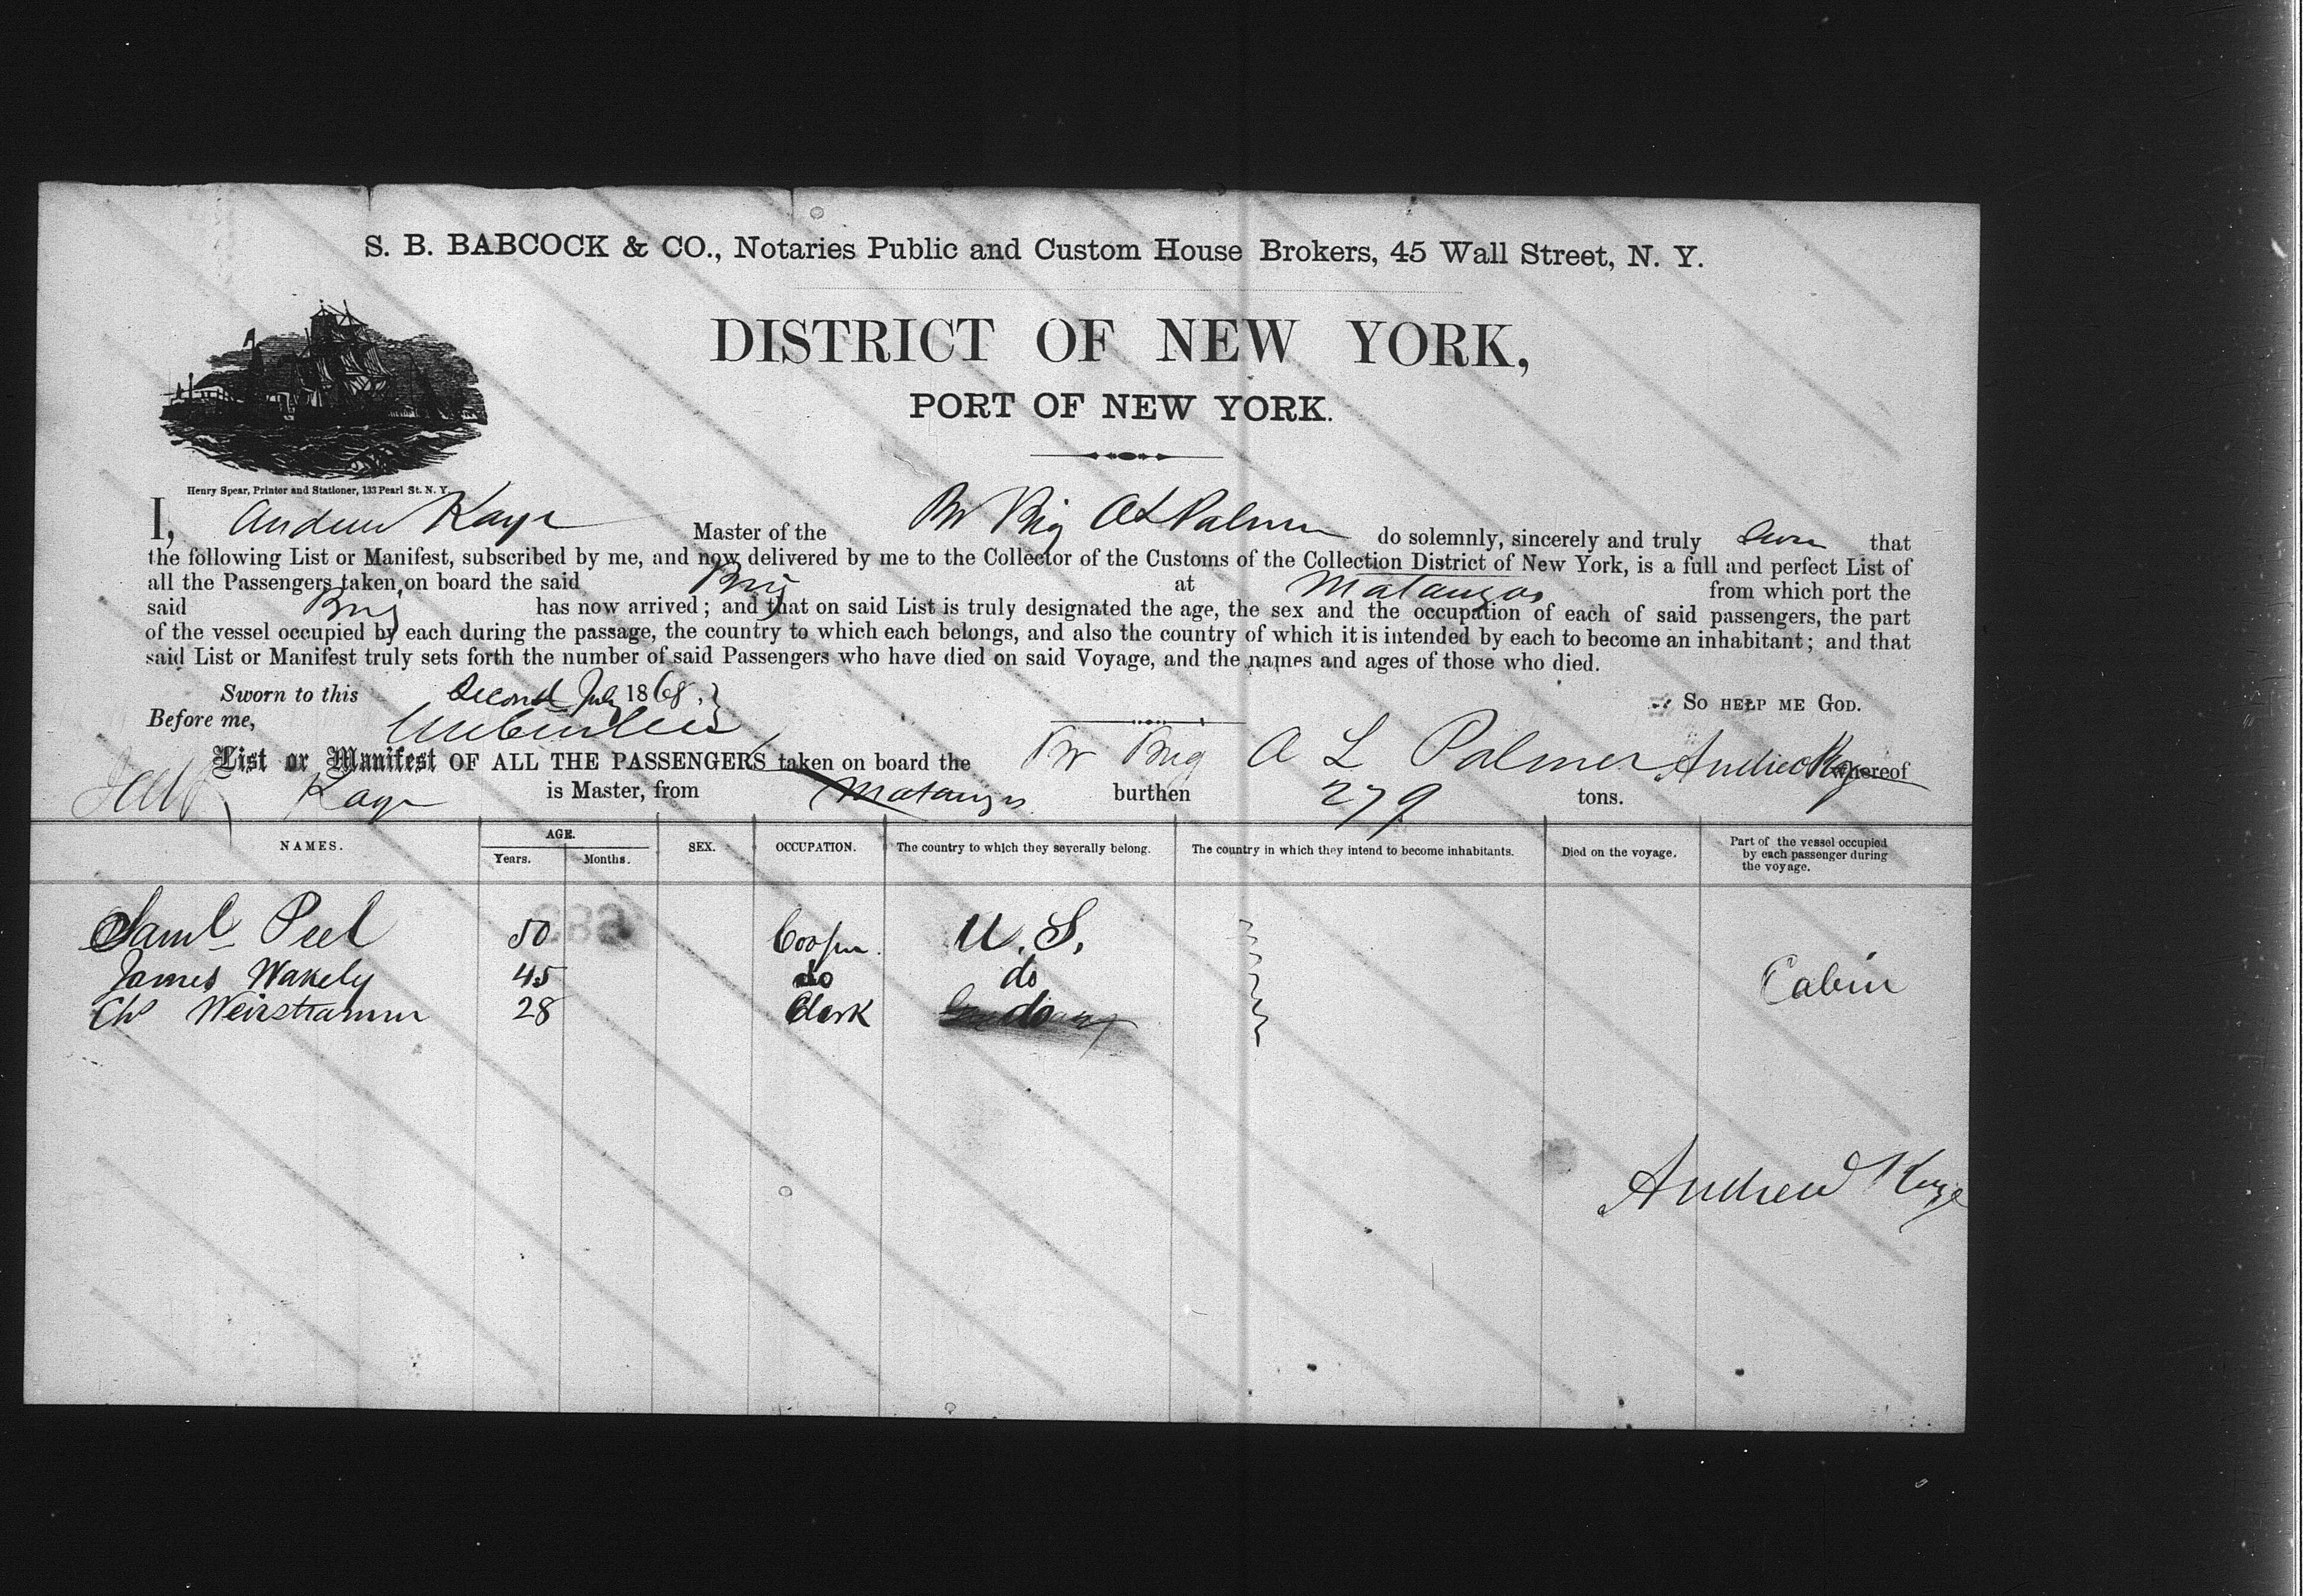 S. B. BABCOCK & CO., Notaries Public and Custom House Brokers, 45 Wall Street, N. Y.
DISTRICT OF NEW YORK,
PORT OF NEW YORK.
Henry Spear, Printer and Stationer, 133 Pearl St. N. Y.
I, Andrew Kaye Master of the Br Brig A L Palmer do solemnly, sincerely and truly swear that
the following List or Manifest, subscribed by me, and now delivered by me to the Collector of the Customs of the Collection District of New York, is a full and perfect List of
all the Passengers taken on board the said Brig at Matanzas from which port the
said Brig has now arrived; and that on said List is truly designated the age, the sex and the occupation of each of said passengers, the part
of the vessel occupied by each during the passage, the country to which each belongs, and also the country of which it is intended by each to become an inhabitant; and that
said List or Manifest truly sets forth the number of said Passengers who have died on said Voyage, and the names and ages of those who died.
Sworn to this Second July 1868. So HELP ME GOD.
Before me,
List or Manifest OF ALL THE PASSENGERS taken on board the Br Brig A L Palmer Andrew Kaye whereof
Kaye is Master, from Matanzas burthen 279 tons.
NAMES. AGE. Years. Months. SEX. OCCUPATION. The country to which they severally belong. The country in which they intend to become inhabitants. Died on the voyage. Part of the vessel occupied by each passenger during the voyage.
Saml Peel 50 Cooper. U.S.
James Wakely 45 do do Cabin
Chs Weirstramm 28 Clerk do
Andrew Kaye